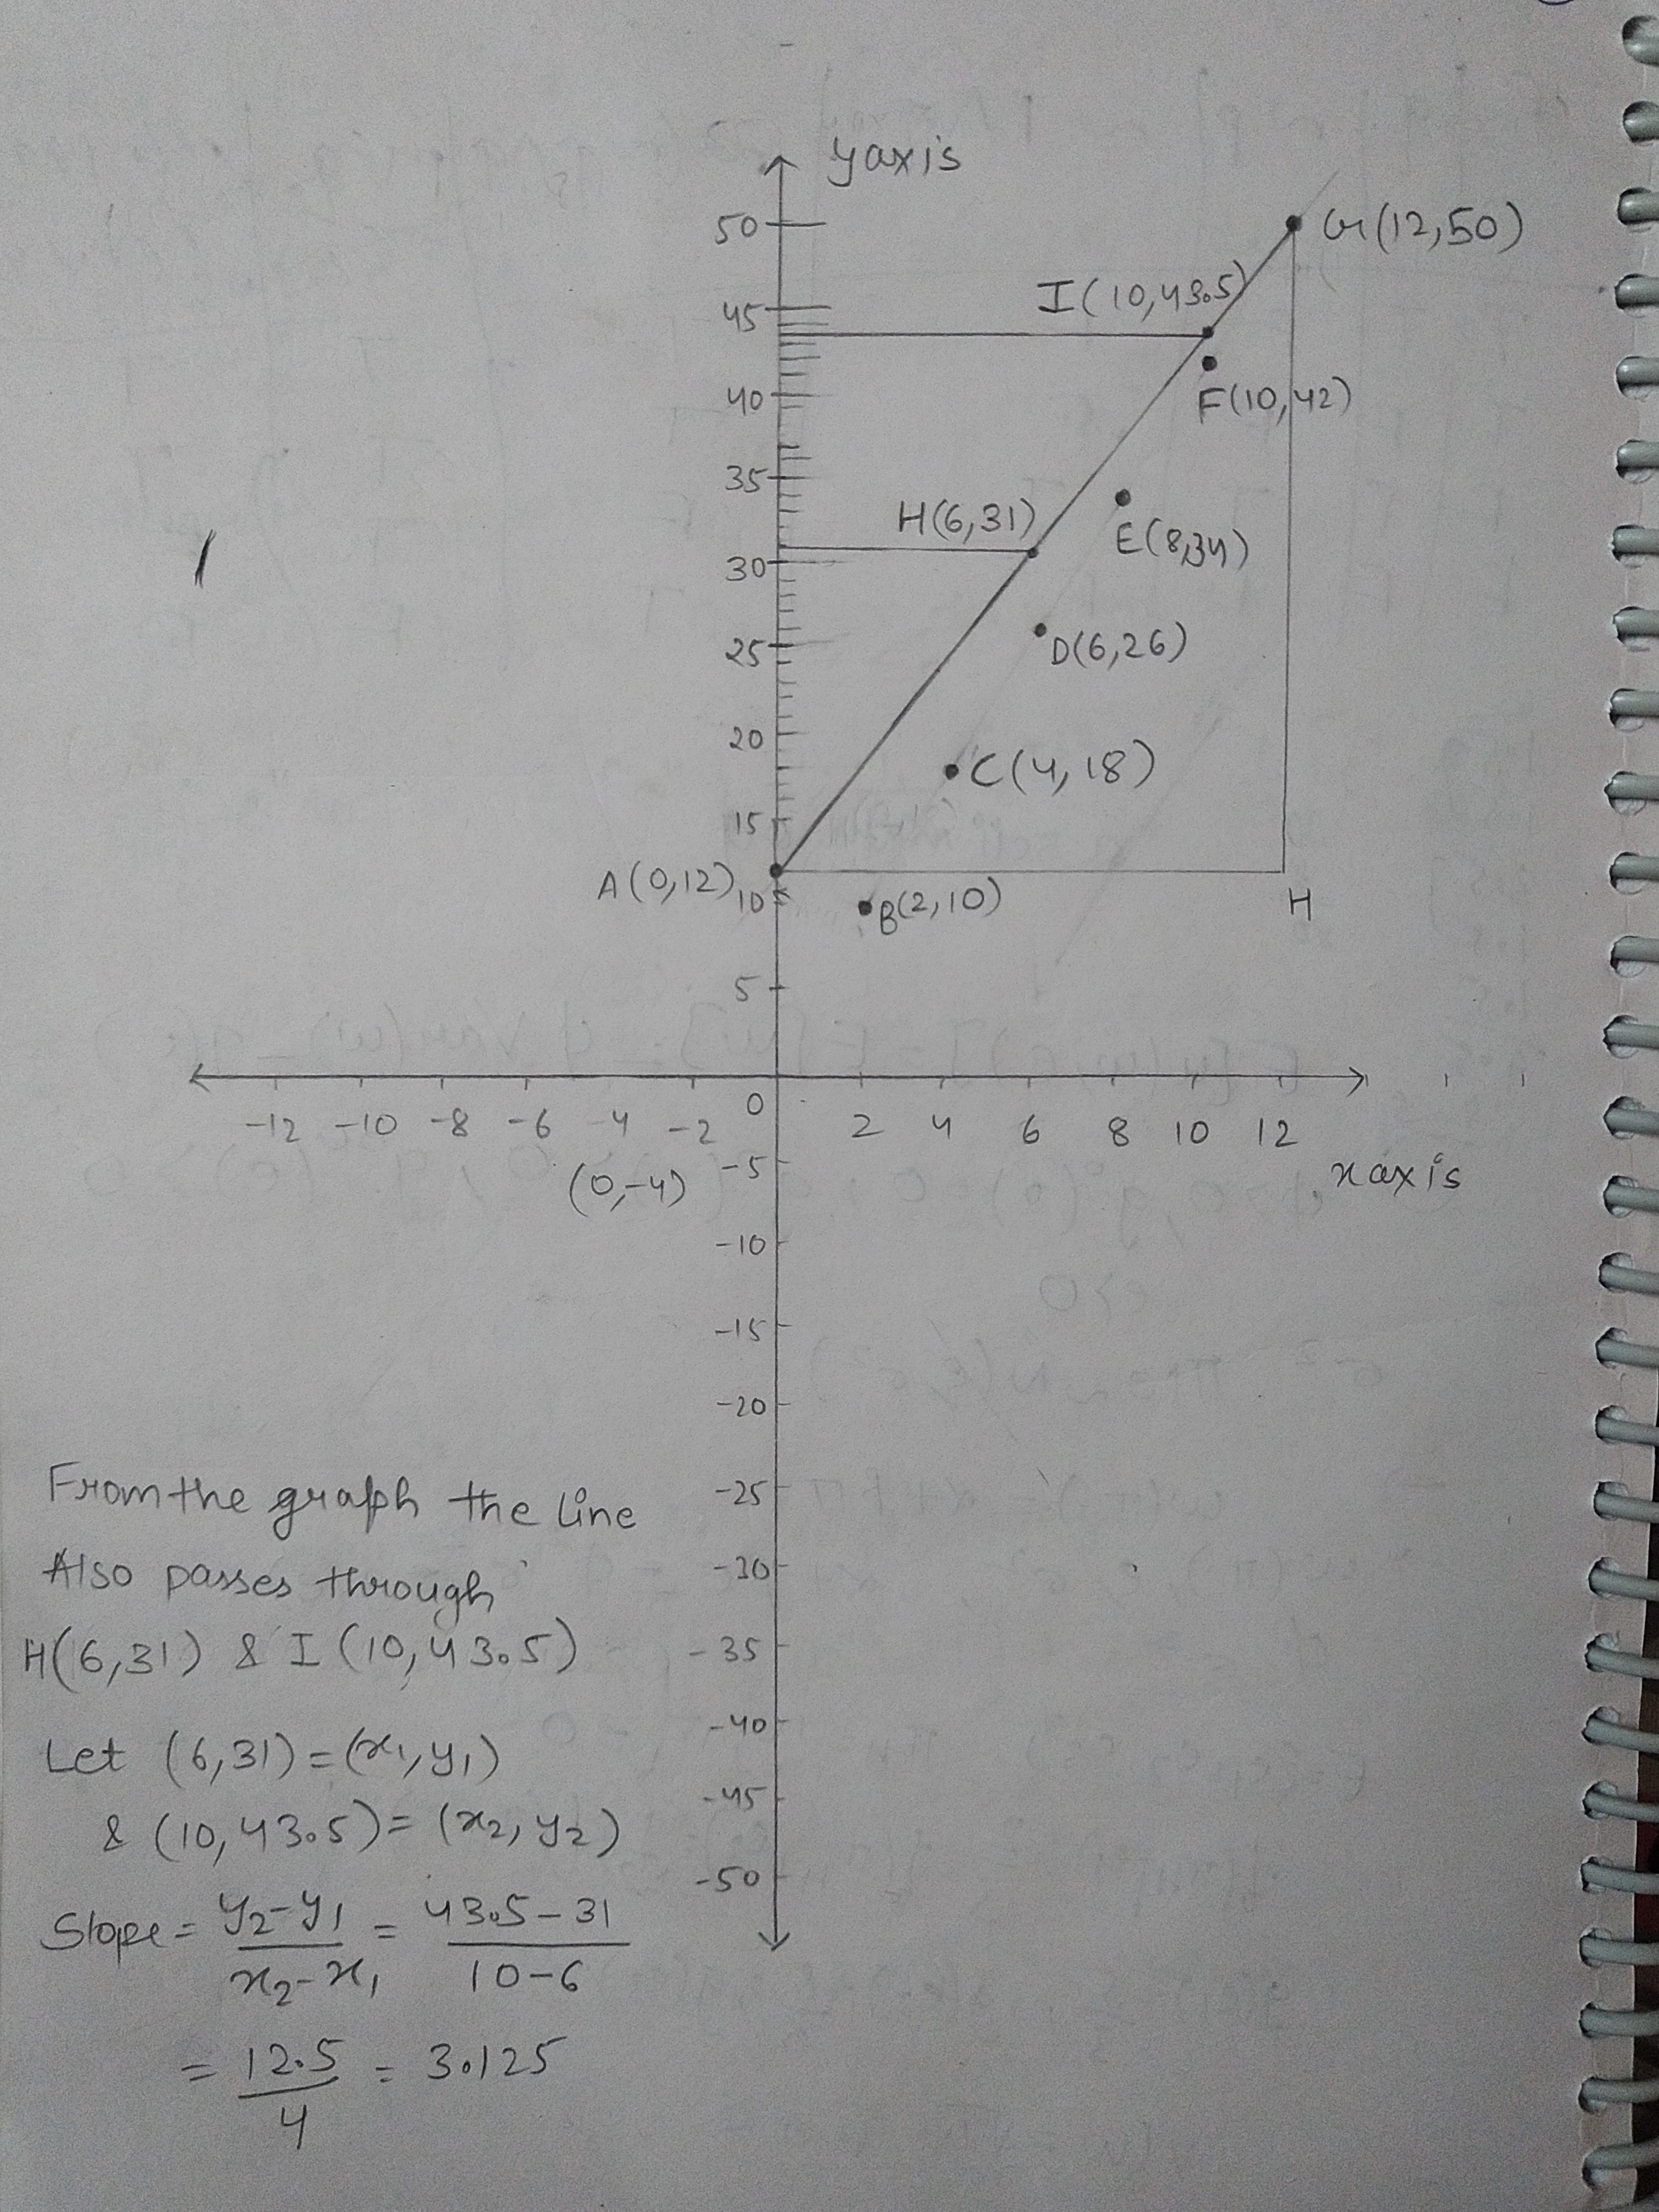 y axis
50
G(12,50)
I(10,43.5)
45
F(10,42)
40
35
H(6,31)
E(8,34)
30
D(6,26)
25
20
C(4,18)
15
A(0,12)
10
B(2,10)
H
5
0
-12 -10 -8 -6 -4 -2 2 4 6 8 10 12
x axis
(0,-4)
-5
-10
-15
-20
-25
-30
-35
-40
-45
-50
From the graph the line
Also passes through
H(6,31) & I(10,43.5)
Let (6,31)=(x₁,y₁)
& (10,43.5)=(x₂,y₂)
Slope = y₂-y₁ / x₂-x₁ = 43.5-31 / 10-6
= 12.5 / 4 = 3.125